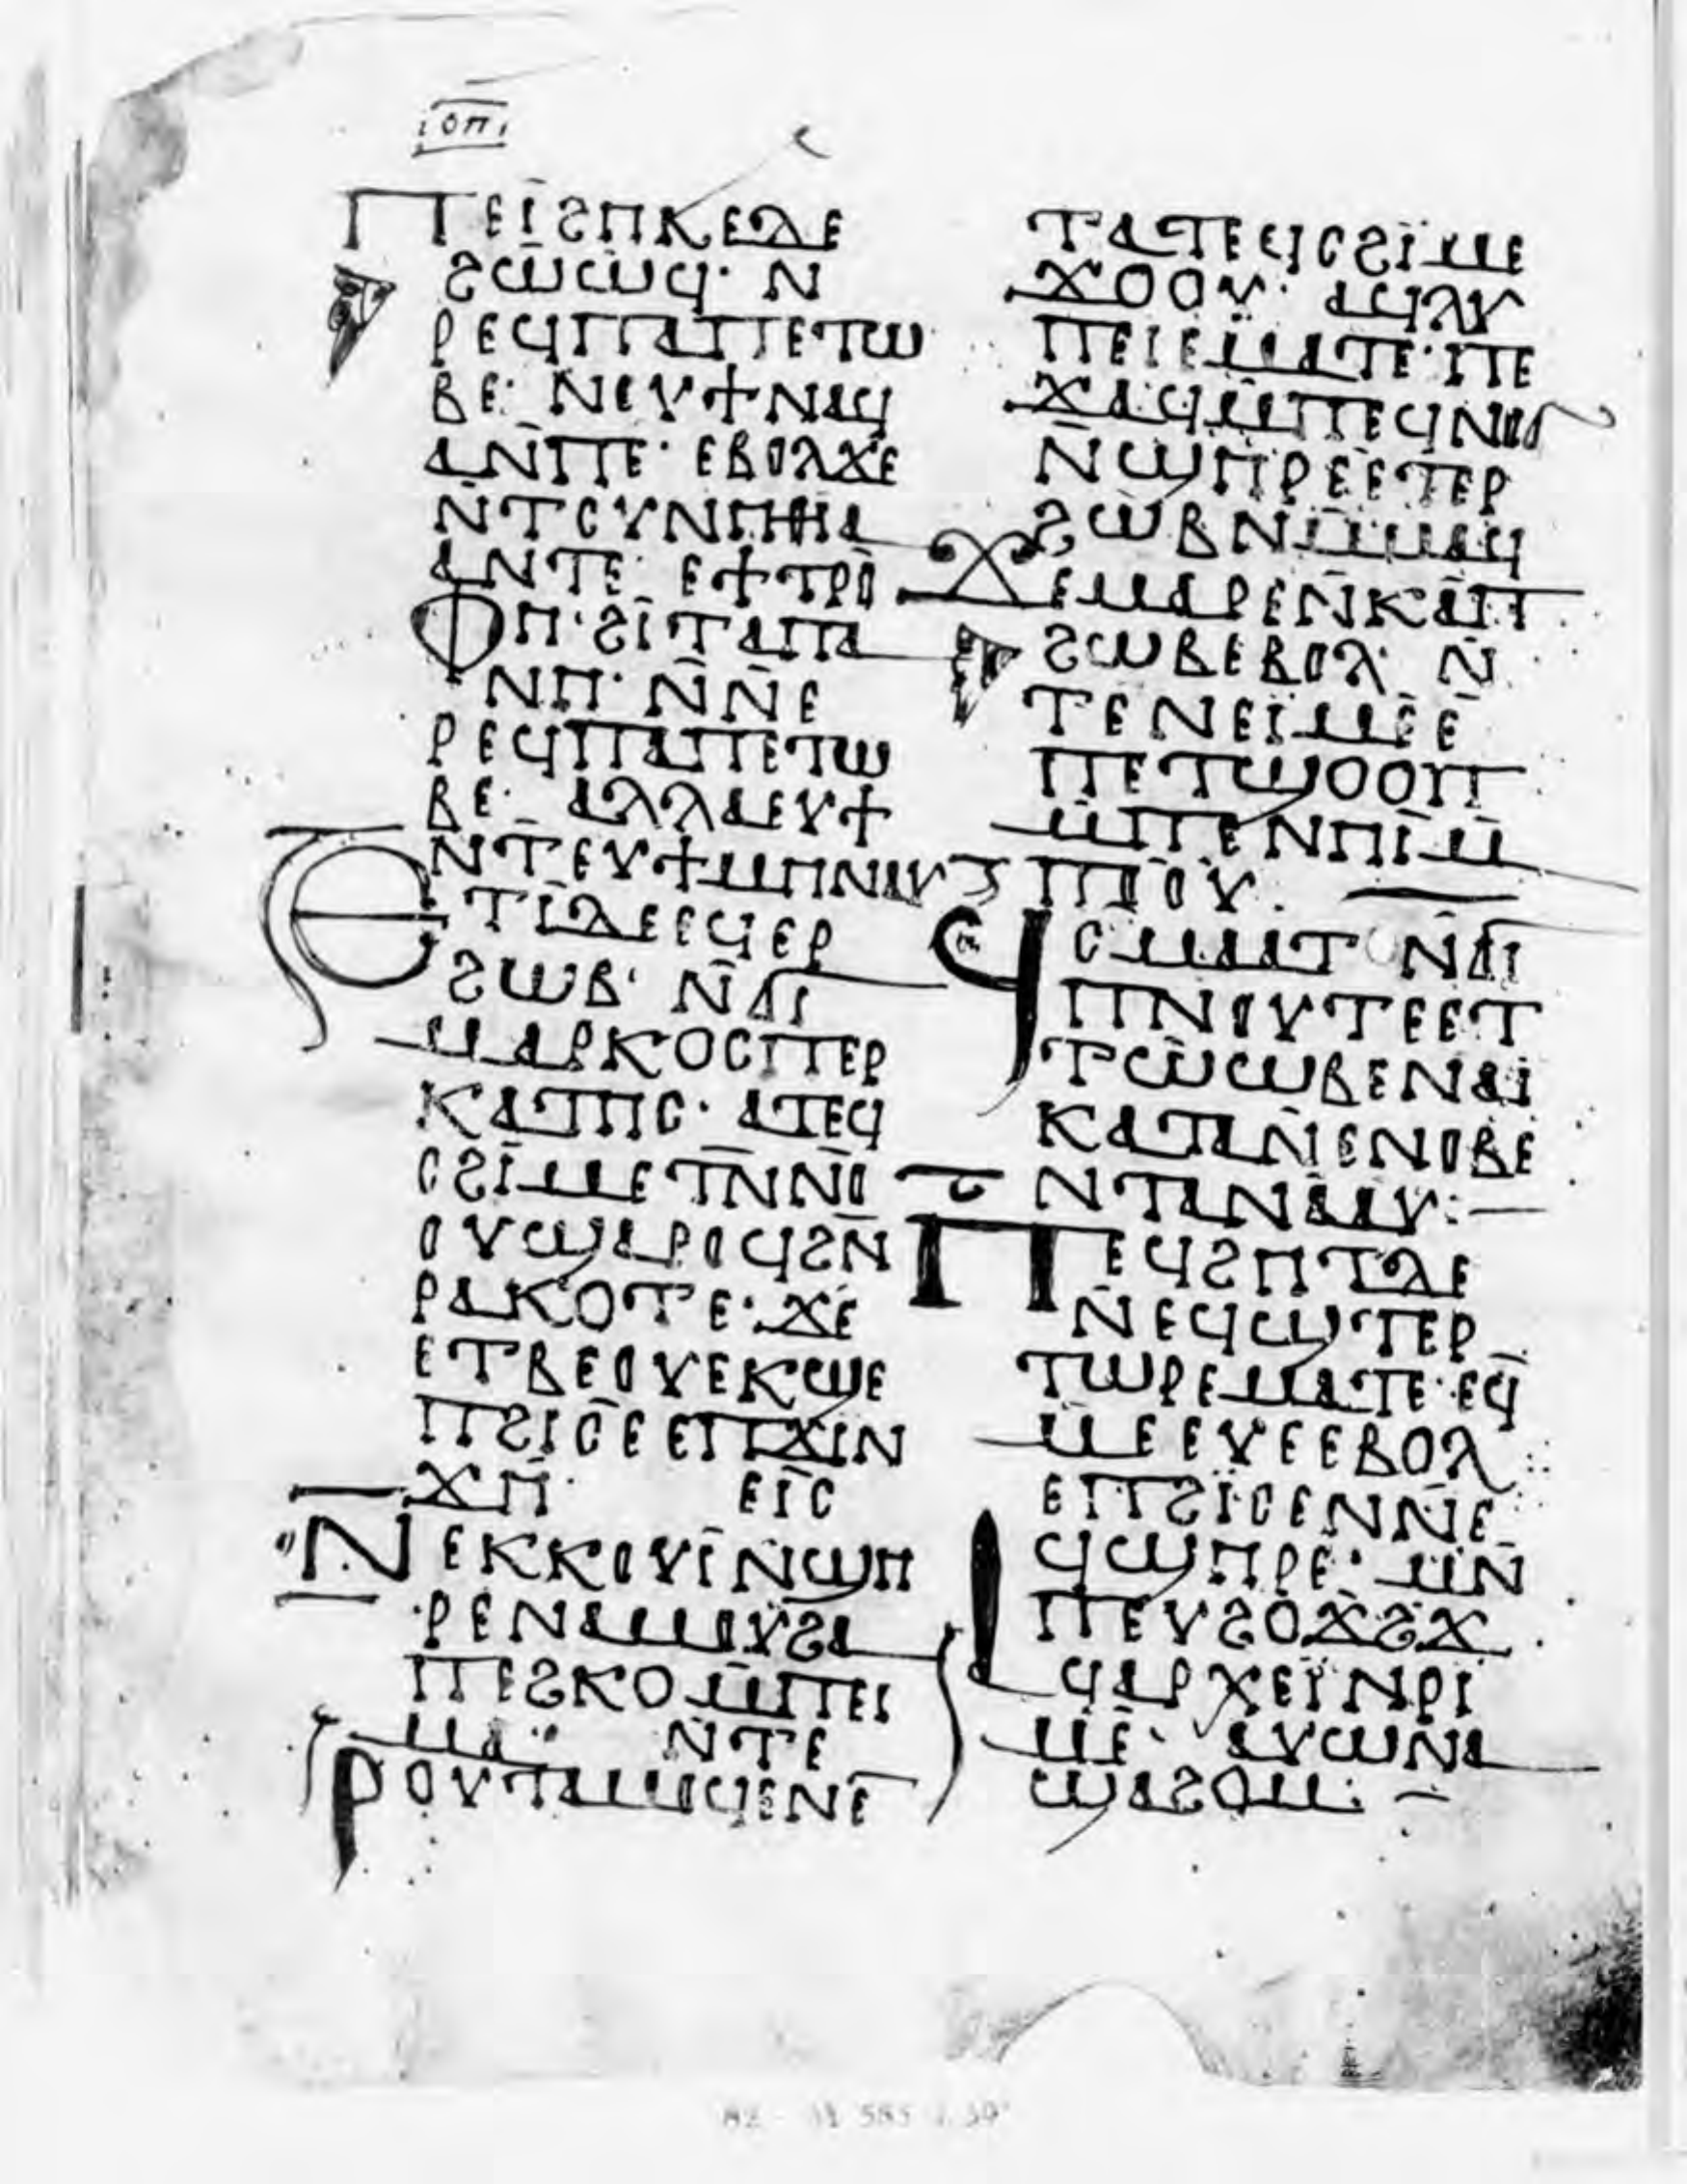 ⲟⲏ
ⲡⲉⲓ̈ϩⲏⲕⲉⲇⲉ
ϩⲱⲱϥ· ⲛ
ⲣⲉϥⲡⲁⲡⲉⲧⲱ
ⲃⲉ· ⲛⲟⲩϯⲛⲁϥ
ⲁⲛ̄ⲡⲉ· ⲉⲃⲟⲗϫⲉ
ⲁⲛⲧⲉ· ⲉϯⲧⲣⲟ
ⲫⲏ· ϩⲓ̄ⲧⲁⲡⲁ
ⲛⲏ· ⲛ̄ⲛ̄ⲉ
ⲣⲉϥⲡⲁⲡⲉⲧⲱ
ⲃⲉ· ⲁⲗⲗⲁⲉⲩϯ
ⲛ̄ⲧⲉⲩϯⲙⲏⲛⲟⲩ
ⲉⲧⲓ̄ⲇⲉⲉϥⲉⲣ
ϩⲱⲃ· ⲛ̄ϭⲓ
ⲙⲁⲣⲕⲟⲥⲡⲉⲣ
ⲕⲁⲧⲏⲥ· ⲁⲧⲉϥ
ⲥϩⲓ̄ⲙⲉⲧⲛ̄ⲛⲟ
ⲟⲩϣⲁⲣⲟϥϩⲛ̄
ⲣⲁⲕⲟⲧⲉ· ϫⲉ
ⲉⲧⲃⲉⲟⲩⲉⲕϣⲉ
ⲡϩⲓⲥⲉⲉⲡϫⲓⲛ
ϫⲏ· ⲉⲓ̄ⲥ
ⲛⲉⲕⲕⲟⲩⲓ̄ⲛ̄ϣⲏ
ⲣⲉⲛⲁⲙⲟⲩϩⲁ
ⲡⲉϩⲕⲟⲙ̄ⲡⲉⲓ
ⲙⲁ· ⲛ̄ⲧⲉ
ⲣⲟⲩⲧⲁⲙⲟϥⲉⲛⲉ̄
ⲧⲁⲧⲉϥⲥϩⲓ̈ⲙⲉ
ϫⲟⲟⲩ· ⲁϥⲗⲩ
ⲡⲉⲓⲉⲙⲁⲧⲉ· ⲡⲉ
ϫⲁϥⲙ̄ⲡⲉϥⲛⲟϭ
ⲛ̄ϣⲏⲣⲉⲉⲧⲉⲣ
ϩⲱⲃⲛⲙ̄ⲙⲁϥ
ϫⲉⲙⲁⲣⲉⲛ̄ⲕⲁⲡ
ϩⲱⲃⲉⲃⲟⲗ· ⲛ̄
ⲧⲉⲛⲉⲓ̈ⲙⲉⲉ̄
ⲡⲉⲧϣⲟⲟⲡ
ⲙ̄ⲡⲉⲛⲏⲓⲙ̄
ⲡⲟⲟⲩ·
ϥⲥⲙⲁⲁⲧ ⲛ̄ϭⲓ
ⲡⲛⲟⲩⲧⲉⲉⲧ
ⲧⲱⲱⲃⲉⲛⲁⲓ̈
ⲕⲁⲧⲁⲛ̄ⲉⲛⲟⲃⲉ
ⲛⲧⲁⲛⲁⲁⲩ:—
ⲡⲉϥϩⲏⲧⲇⲉ
ⲛ̄ⲉϥϣⲧⲉⲣ
ⲧⲱⲣⲉⲙⲁⲧⲉ·ⲉϥ
ⲙⲉⲉⲩⲉⲉⲃⲟⲗ
ⲉⲡϩⲓ̈ⲥⲉⲛⲛ̄ⲉ
ϥϣⲏⲣⲉ· ⲙⲛ̄
ⲡⲉⲩϩⲟϫϩϫ
ⲁϥⲁⲣⲭⲉⲓ̈ⲛⲣⲓ
ⲙⲉ̄· ⲁⲩⲱⲛⲁ
ϣⲁϩⲟⲙ:—